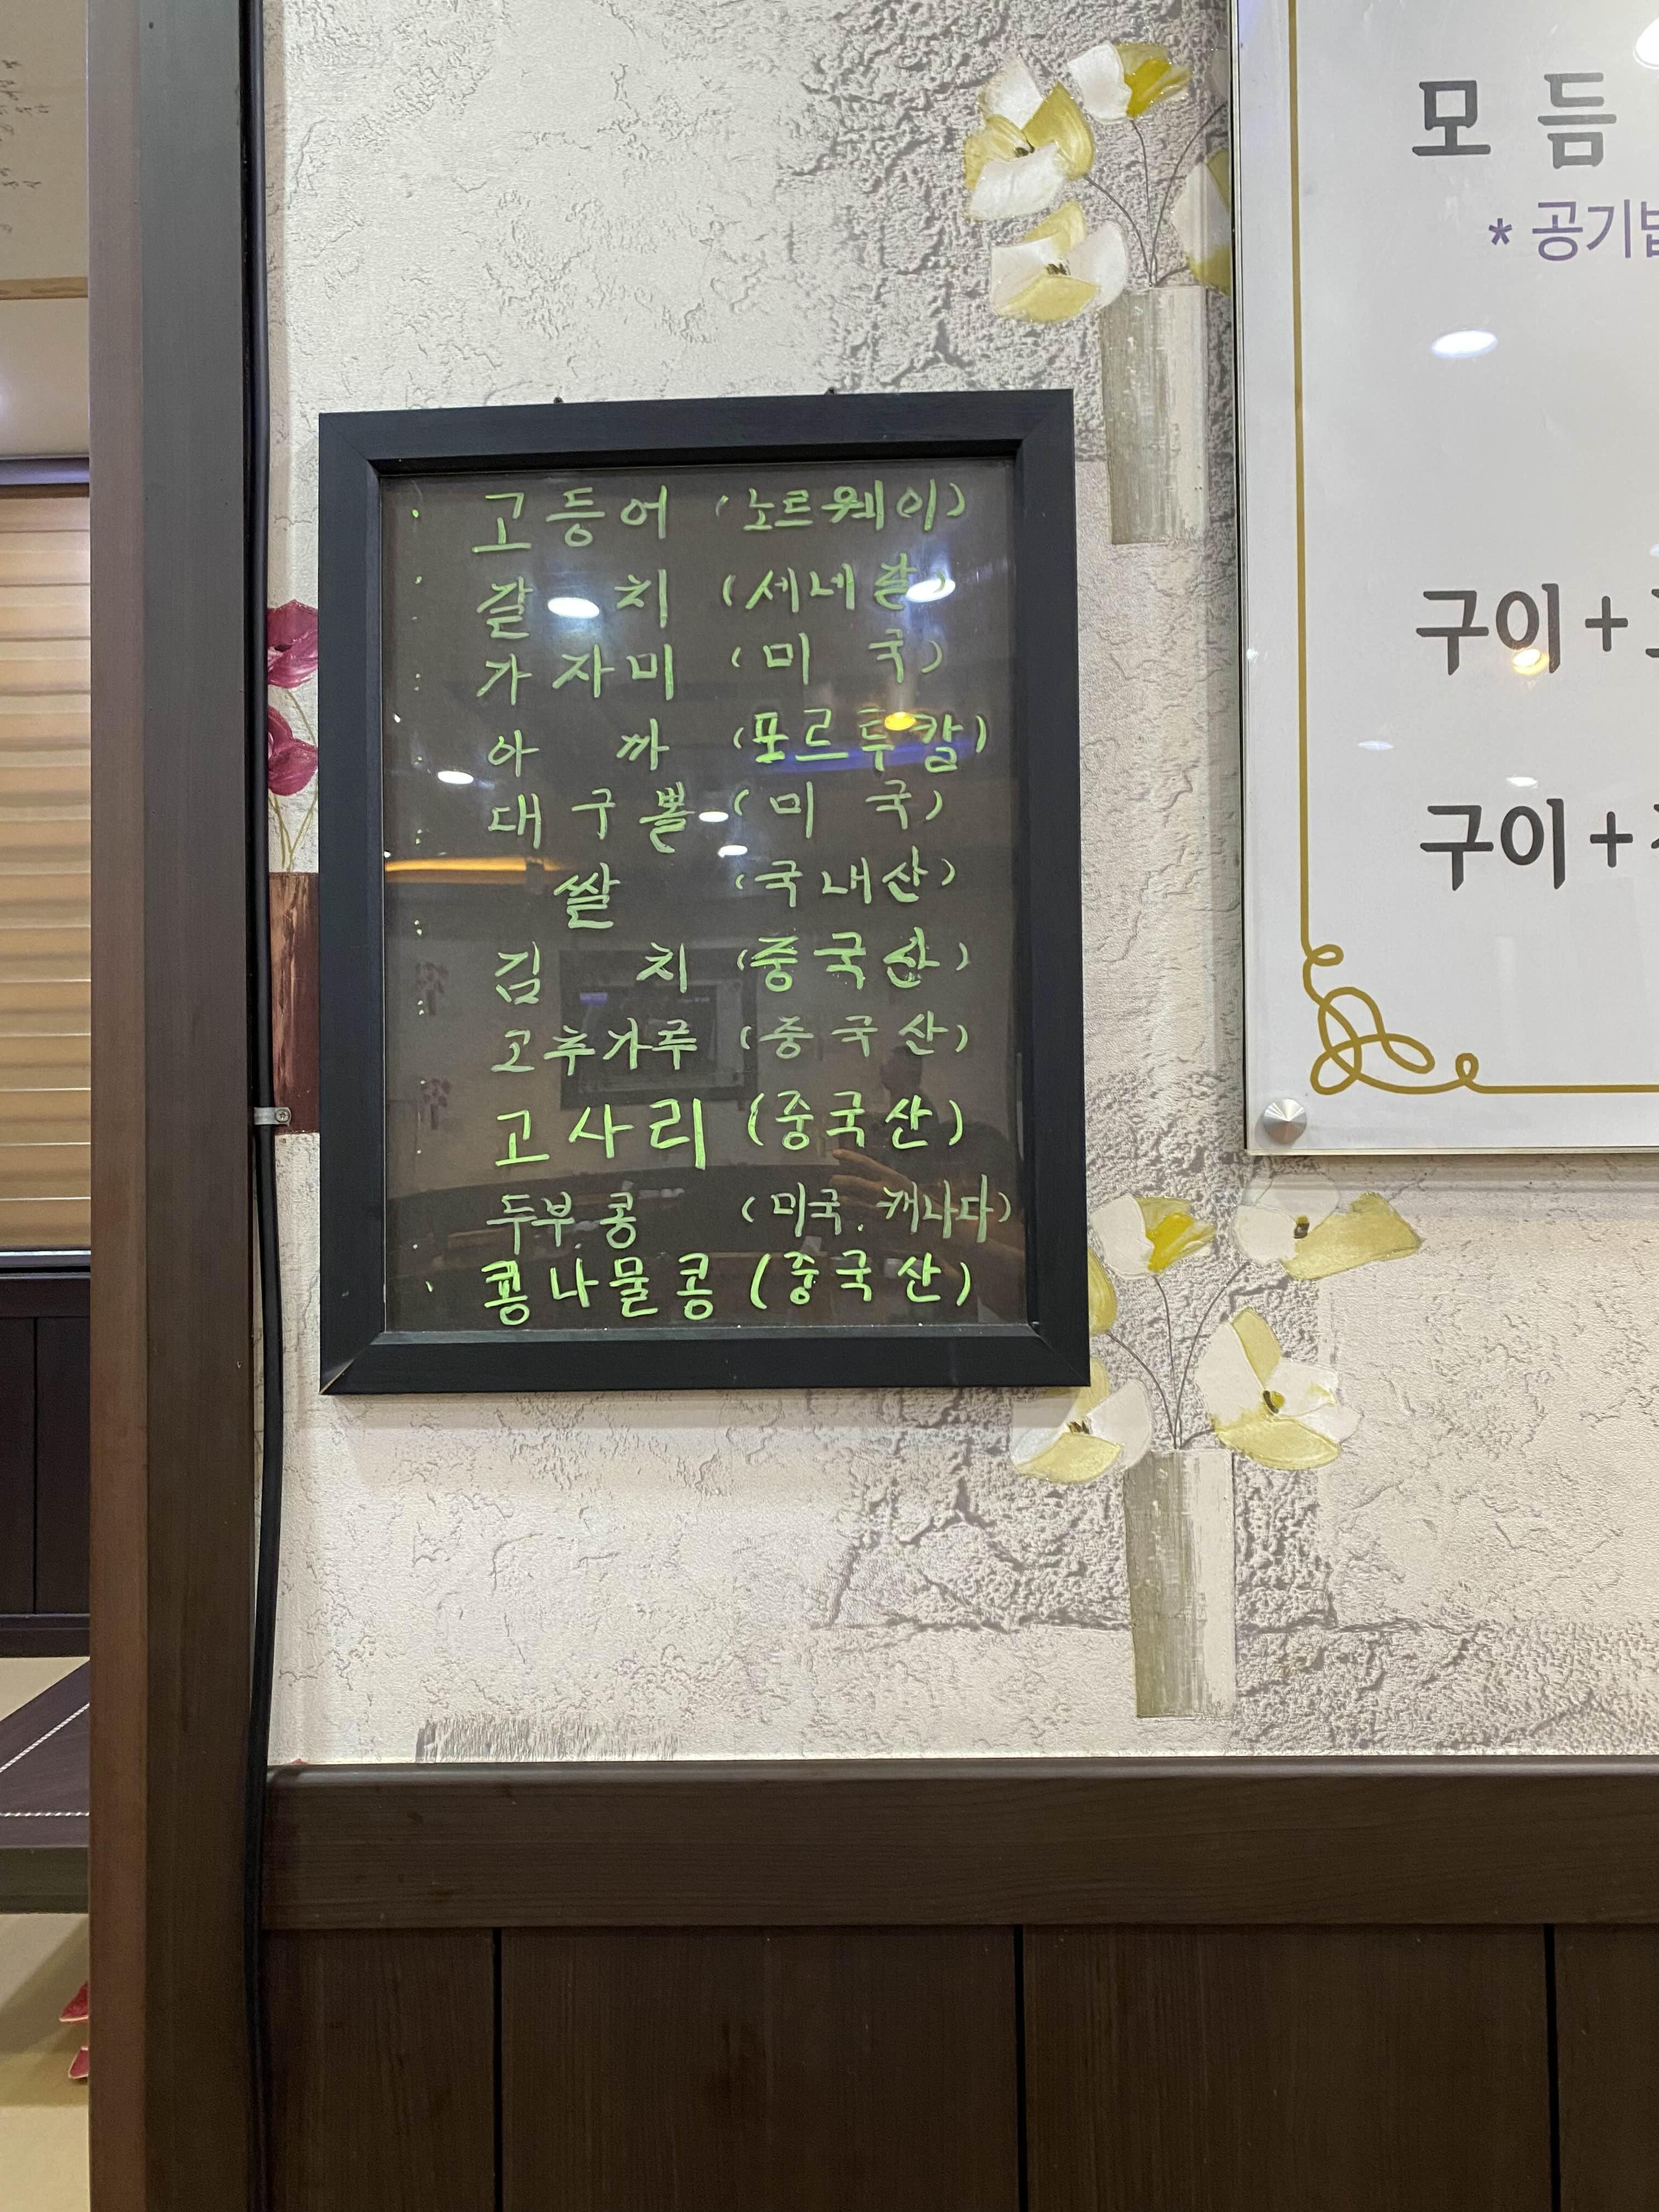 고등어 (노르웨이)
갈치 (세네갈)
가자미 (미국)
아까 (포르투칼)
대구뽈 (미국)
쌀 (국내산)
김치 (중국산)
고추가루 (중국산)
고사리 (중국산)
두부콩 (미국. 캐나다)
콩나물콩 (중국산)
모듬
* 공기밥
구이+
구이+